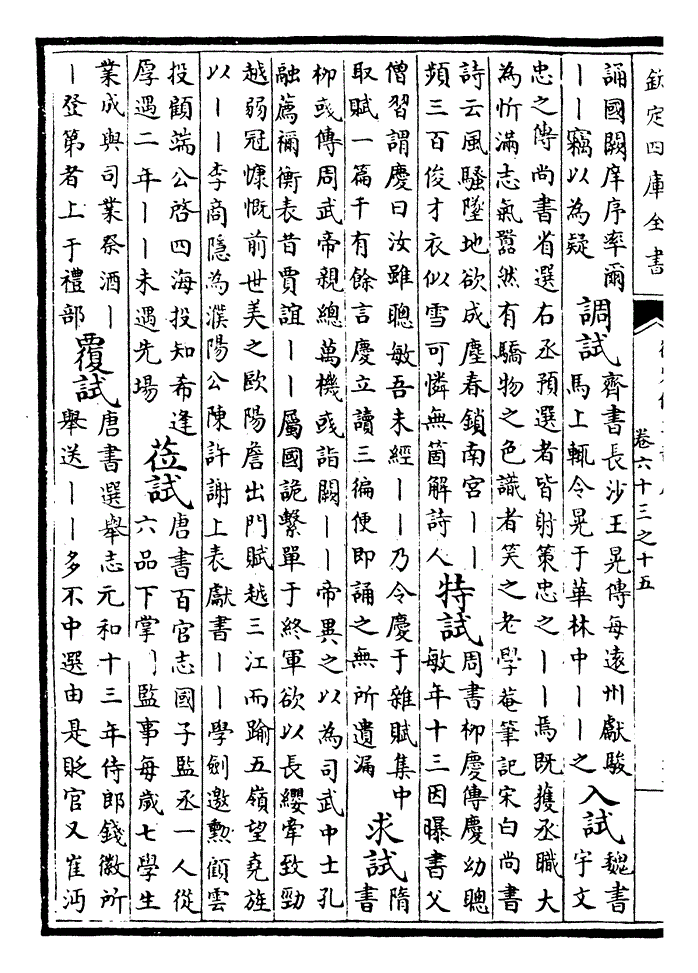 欽定四庫全書
卷六十三之十五
誦國闕庠序率爾
——竊以為疑
調試
齊書長沙王晃傳每遠州獻駿
馬上輒令晃于華林中——之
入試
魏書
宇文
忠之傳尚書省選右丞預選者皆射策忠之——焉既獲丞職大
為忻滿志氣囂然有驕物之色識者笑之老學菴筆記宋白尚書
詩云風騷墜地欲成塵春鎖南宮——
頻三百俊才衣似雪可憐無箇解詩人
特試
周書柳慶傳慶幼聰
敏年十三因曝書父
僧習謂慶曰汝雖聰敏吾未經——乃令慶于雜賦集中
取賦一篇千有餘言慶立讀三徧便即誦之無所遺漏
求試
隋
書
柳彧傳周武帝親總萬機彧詣闕——帝異之以為司武中士孔
融薦禰衡表昔賈誼——屬國詭繫單于終軍欲以長纓牽致勁
越弱冠慷慨前世美之歐陽詹出門賦越三江而踰五嶺望堯旌
以——李商隱為濮陽公陳許謝上表獻書——學劍邀勲顧雲
投顧端公啓四海投知希逢
厚遇二年——未遇先場
莅試
唐書百官志國子監丞一人從
六品下掌—監事每歲七學生
業成與司業祭酒—
—登第者上于禮部
覆試
唐書選舉志元和十三年侍郎錢徽所
舉送——多不中選由是貶官又崔沔